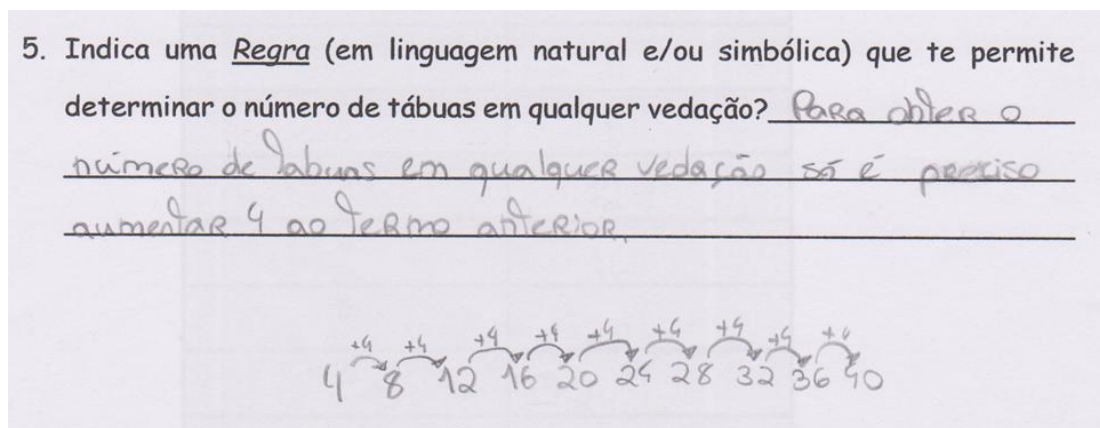 5. Indica uma Regra (em linguagem natural e/ou simbólica) que te permite
determinar o número de tábuas em qualquer vedação? Para obter o
número de tabuas em qualquer vedação só é preciso
aumentar 4 ao termo anterior.
+4 +4 +4 +4 +4 +4 +4 +4 +4
4 8 12 16 20 24 28 32 36 40